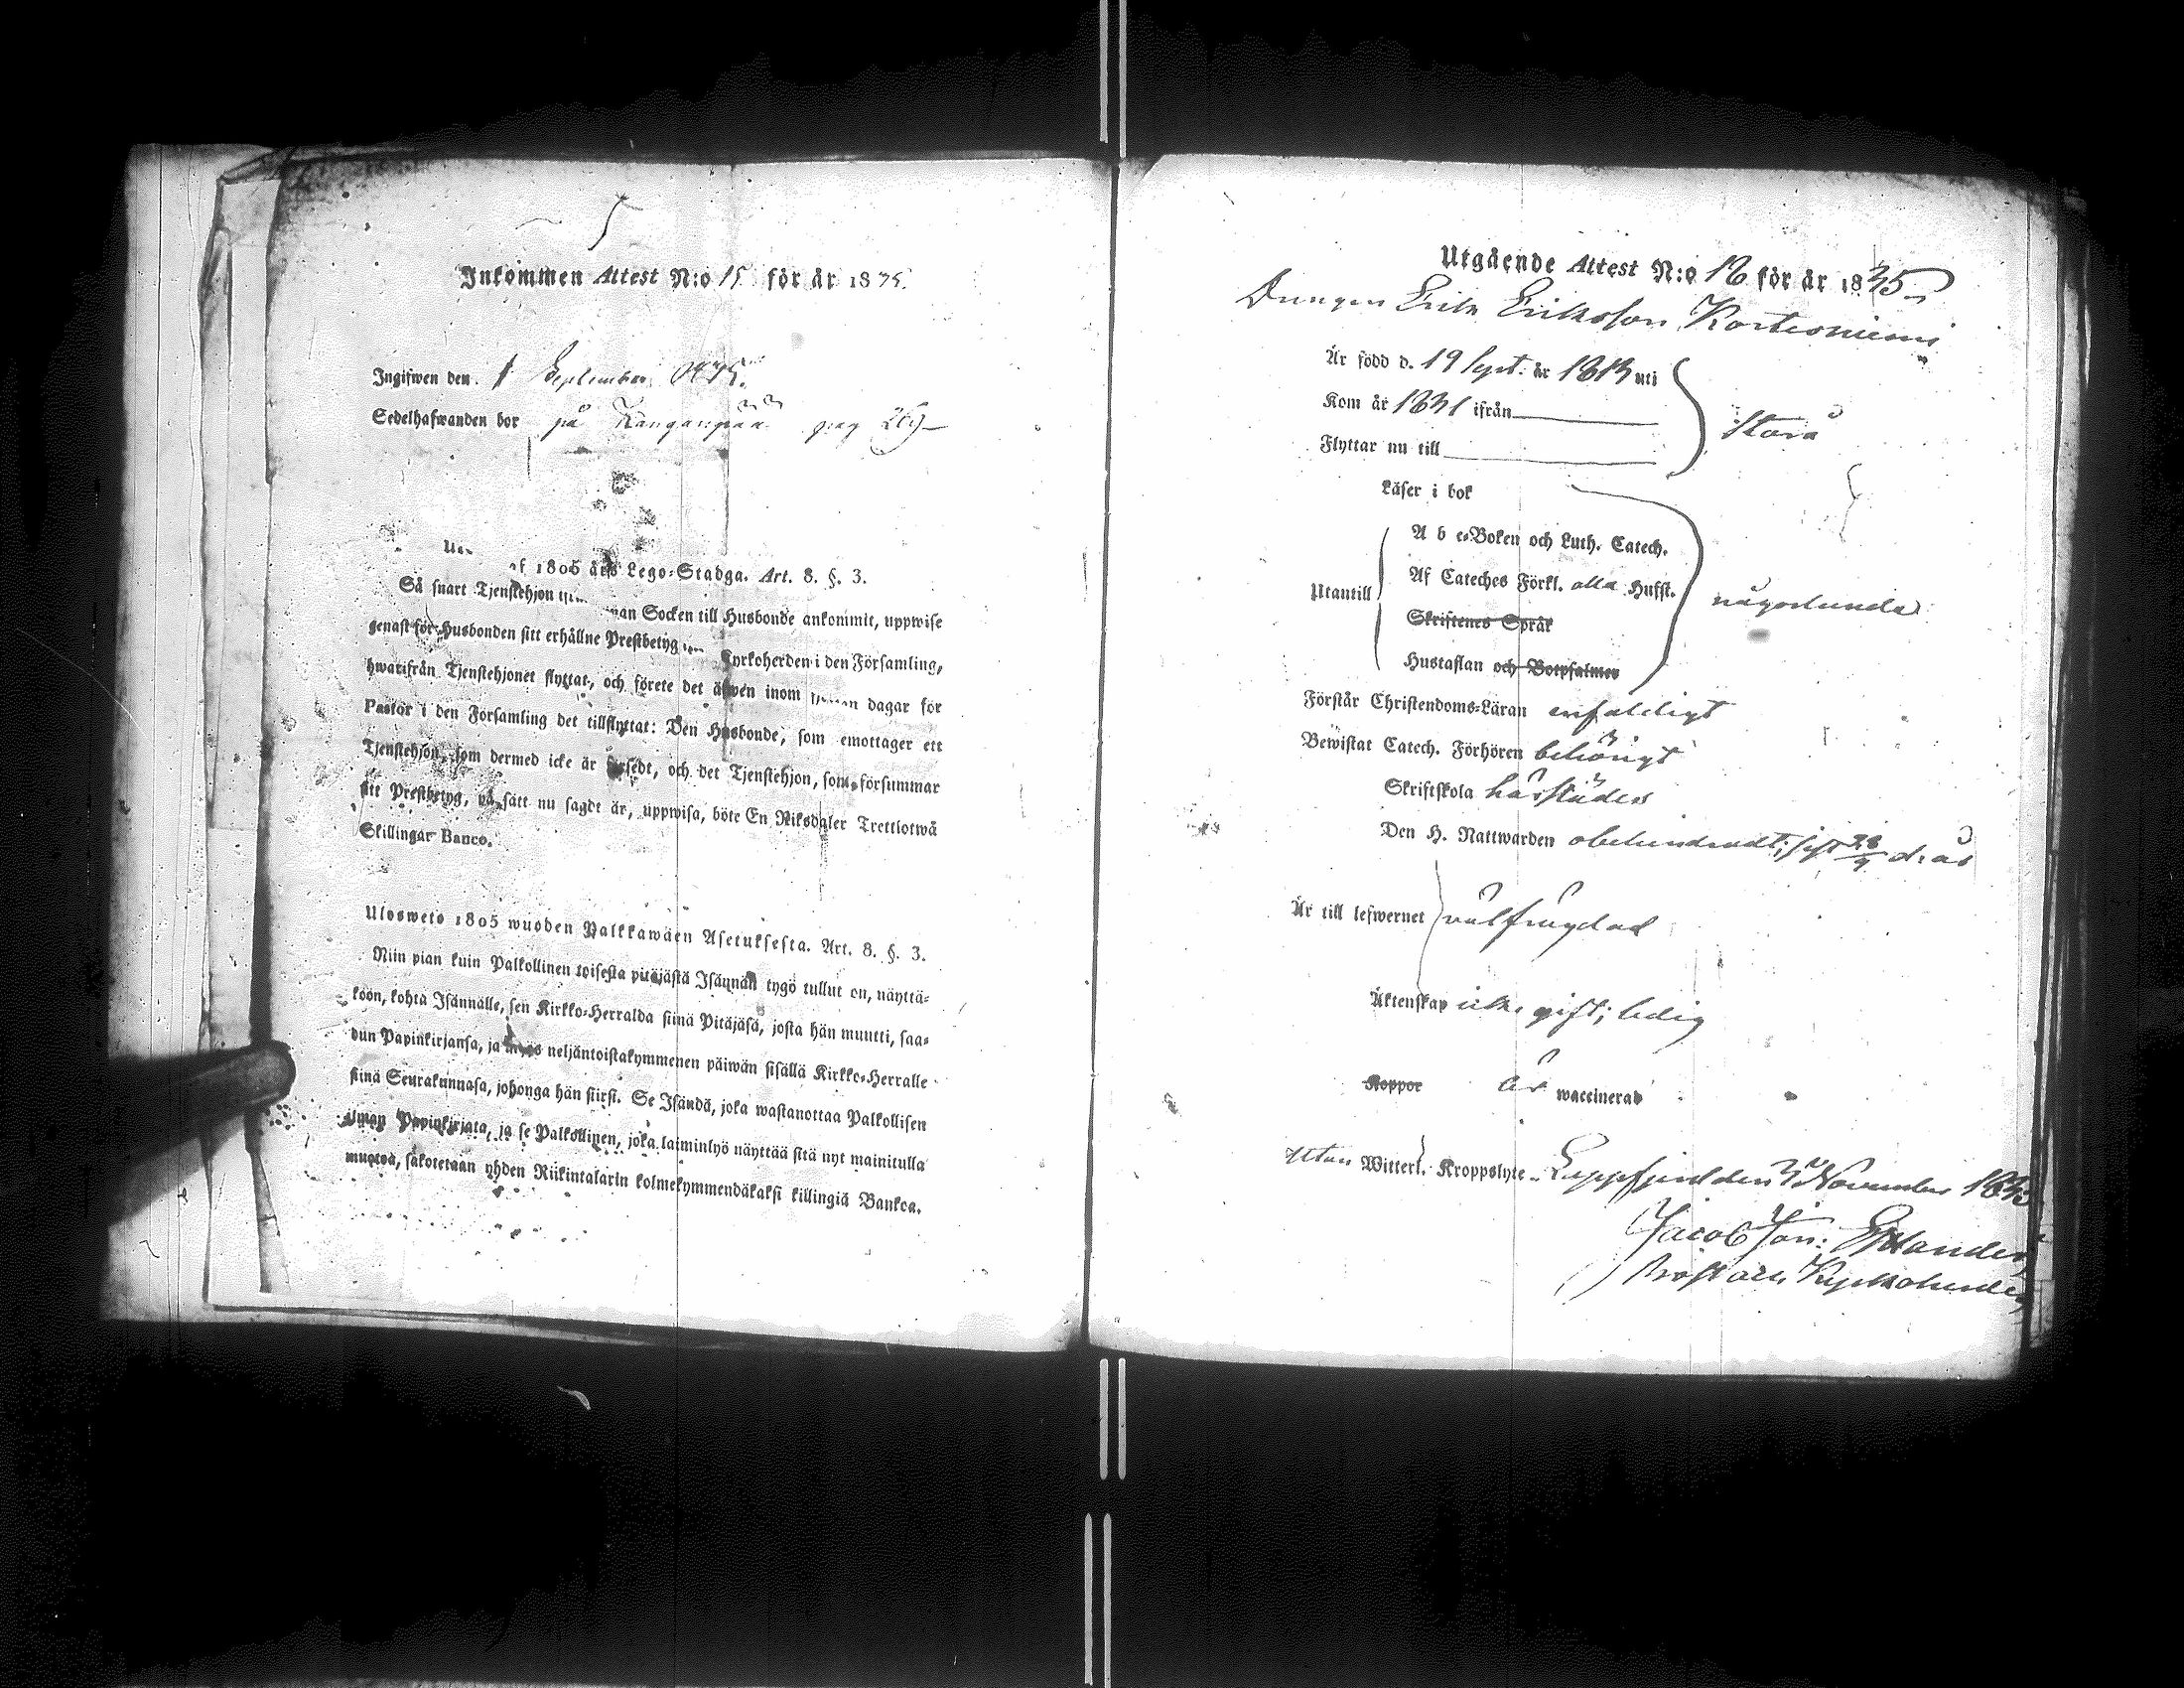 5
Inkommen Attest N:o 15 för år 1835.
Ingifwen den 1 September
Sedelhafwanden bor på Kanganpää pag
af 1805 års Lego-Stadga. Art. 8. §. 3.
Så snart Tjenstehjon Socken till Husbonde ankommit, uppwise
genast för Husbonden sitt erhållne Prestbetyg Kyrkoherden i den Församling,
hwarifrån Tjenstehjonet flyttat, och förete det äfwen inom dagar för
Pastor i den Församling det tillflyttat: Den Husbonde, som emottager ett
Tjenstehjon, som dermed icke är försedt, och det Tjenstehjon, som försummar
sitt Prestbetyg, på sätt nu sagdt är, uppwisa, böte En Riksdaler Trettiotwå
Skillingar Banco.
Ulosweto 1805 wuoden Palkkawäen Asetuksesta. Art. 8. §. 3.
Niin pian kuin Palkollinen toisesta pitäjästä Isännän tygö tullut on, näyttä-
köön, kohta Isännälle, sen Kirkko-Herralda siinä Pitäjäsä, josta hän muutti, saa-
dun Papinkirjansa, ja myös neljäntoistakymmenen päiwän sisällä Kirkko-Herralle
siinä Seurakunnasa, johonga hän siirsi. Se Isändä, joka wastanottaa Palkollisen
ilman Papinkirjata, ja se Palkollinen, joka laiminlyö näyttää sitä nyt mainitulla
muotoa, sakotetaan yhden Riikintalarin kolmekymmendäkaksi killingiä Bankoa.
Utgående Attest N:o 12 för år 1835
Drengen Erik Eriksson Kortesniemi
Är född d. 19 Sept. år 1813 uti
Kom år 1831 ifrån
Storå
Flyttar nu till
Läser i bok
A b c-Boken och Luth. Catech.
Af Cateches Förkl. alla Husst.
Utantill
någorlunda
Skriftenes Språk
Hustaflan och Botpsalmer
Förstår Christendoms-Läran enfaldigt
Bewistat Catech. Förhören behörigt
Skriftskola härstädes
Den H. Nattwarden obehindradt; sist d: år
Är till lefwernet välfrägdad
Äktenskap icke gift; ledig
Koppor är waccinerad
utan Witterl. Kroppslyte. Lappfjerd den 3 November 1835
Jacob Jon:
Prost och Kyrkoherde